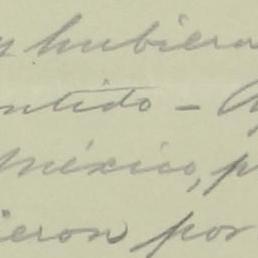 y hubiera
ntido - A
México, p
ieron por